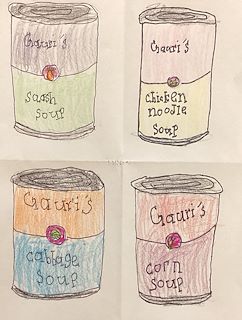 Gauri's
saash
soup
Gauri's
chicken
noodle
soup
Gauri's
cabbage
soup
Gauri's
corn
soup